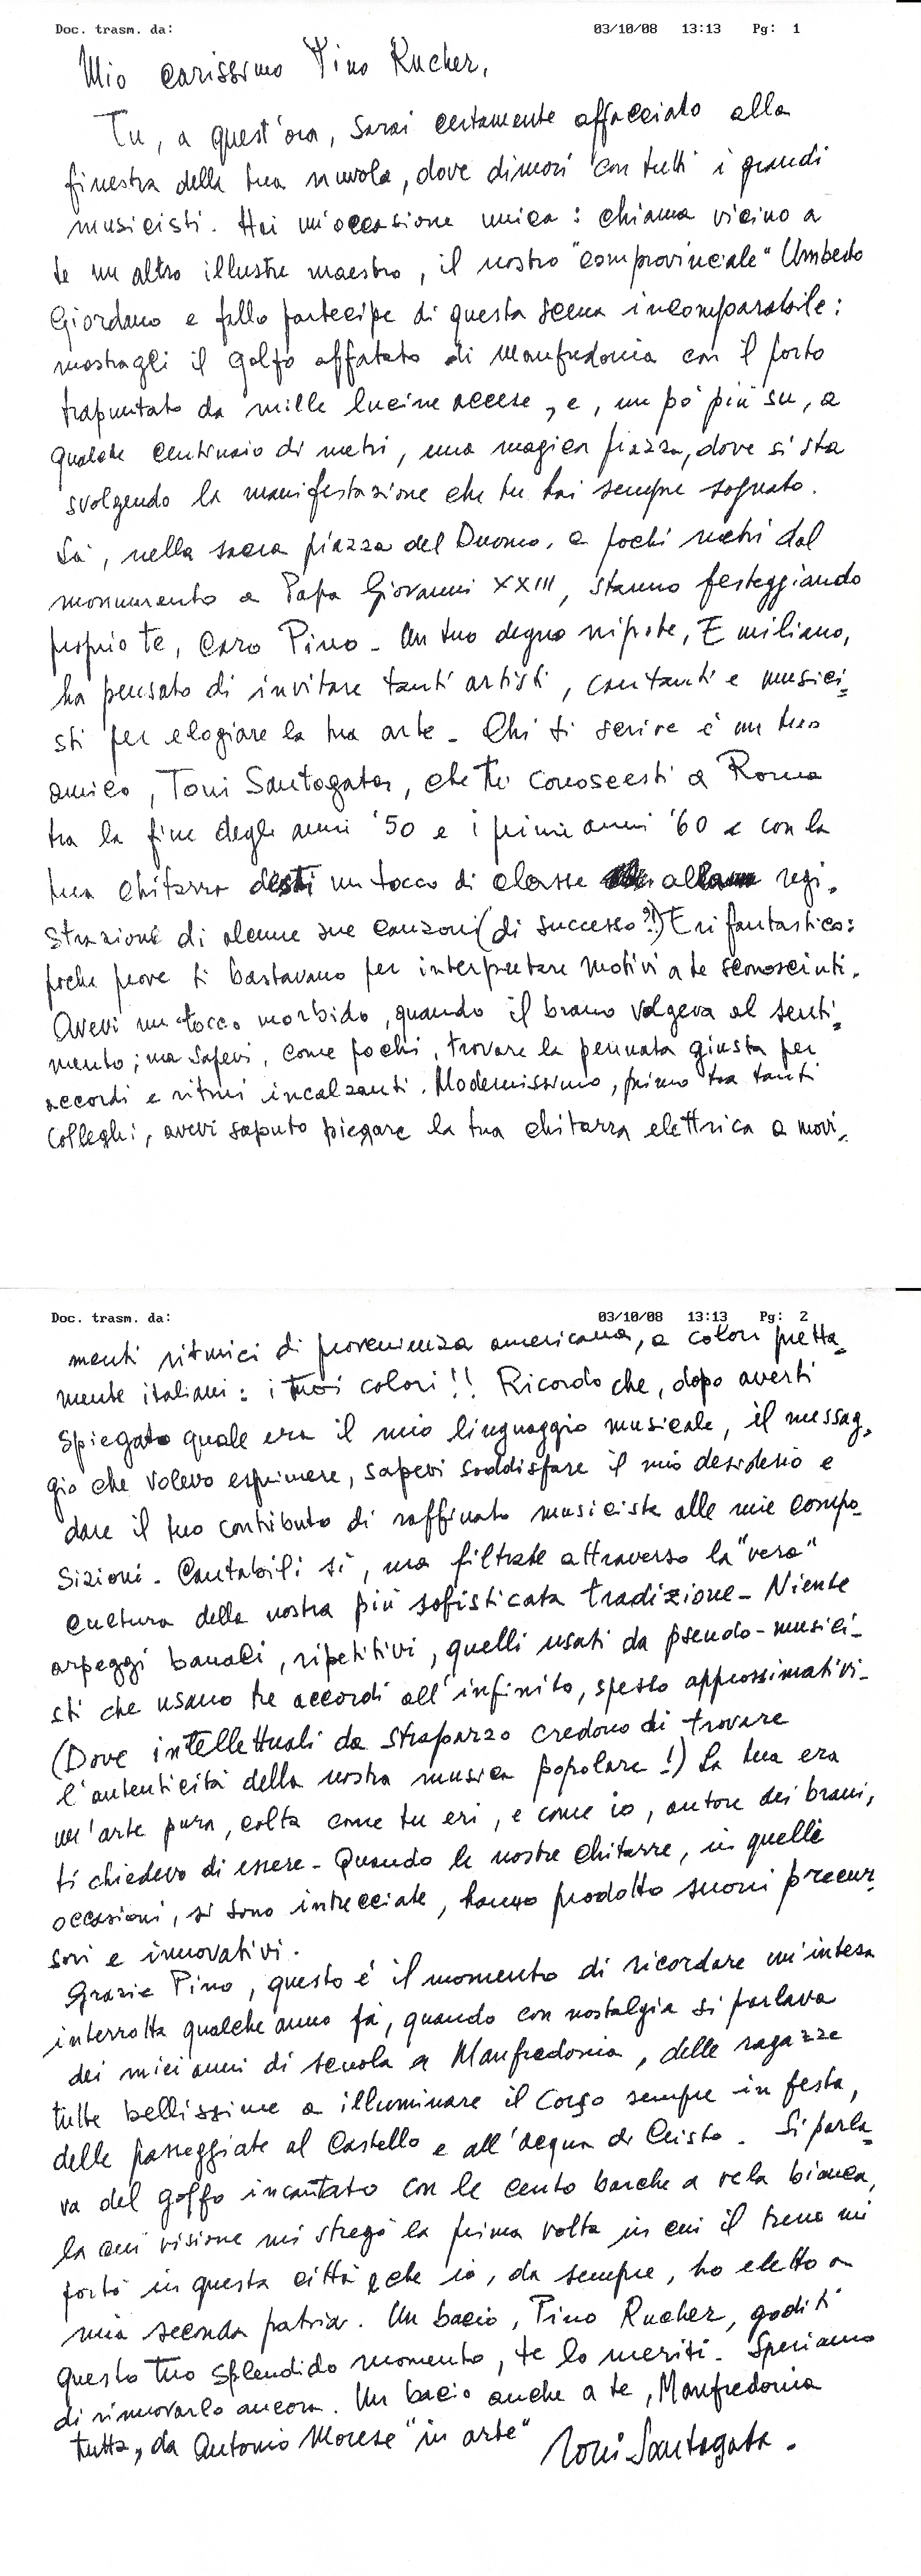 Doc. trasm. da: 03/10/08 13:13 Pg: 1
Mio carissimo Pino Rucher,
Tu, a quest'ora, sarai certamente affacciato alla
finestra della tua nuvola, dove dimori con tutti i grandi
musicisti. Hai un'occasione unica: chiama vicino a
te un altro illustre maestro, il nostro "comprovinciale" Umberto
Giordano e fallo partecipe di questa scena incomparabile:
mostragli il golfo affatato di Manfredonia con il porto
trapuntato da mille lucine accese, e, un pò più su, a
qualche centinaio di metri, una magica piazza, dove si sta
svolgendo la manifestazione che tu hai sempre sognato.
Là, nella sacra piazza del Duomo, a pochi metri dal
monumento a Papa Giovanni XXIII, stanno festeggiando
proprio te, caro Pino - Un tuo degno nipote, Emiliano,
ha pensato di invitare tanti artisti, cantanti e musici=
sti per elogiare la tua arte - Chi ti scrive è un tuo
amico, Toni Santagata, che tu conoscesti a Roma
tra la fine degli anni '50 e i primi anni '60 e con la
tua chitarra desti un tocco di classe alla regi=
strazione di alcune sue canzoni (di successo?!) Eri fantastico:
poche prove ti bastavano per interpretare motivi a te sconosciuti.
Avevi un tocco morbido, quando il brano volgeva al senti=
mento; ma sapevi, come pochi, trovare la pennata giusta per
accordi e ritmi incalzanti. Modernissimo, primo tra tanti
colleghi, avevi saputo piegare la tua chitarra elettrica a movi=
Doc. trasm. da: 03/10/08 13:13 Pg: 2
menti ritmici di provenienza americana, a colori pretta=
mente italiani: i tuoi colori!! Ricordo che, dopo averti
spiegato quale era il mio linguaggio musicale, il messag=
gio che volevo esprimere, sapevi soddisfare il mio desiderio e
dare il tuo contributo di raffinato musicista alle mie compo-
sizioni - Cantabili sì, ma filtrate attraverso la "vera"
cultura della nostra più sofisticata tradizione - Niente
arpeggi banali, ripetitivi, quelli usati da pseudo-musici-
sti che usano tre accordi all'infinito, spesso approssimativi-
(Dove intellettuali da strapazzo credono di trovare
l'autenticità della nostra musica popolare!) La tua era
un'arte pura, colta come tu eri, e come io, autore dei brani,
ti chiedevo di essere - Quando le nostre chitarre, in quelle
occasioni, si sono intrecciate, hanno prodotto suoni precur=
sori e innovativi.
Grazie Pino, questo è il momento di ricordare un'intesa
interrotta qualche anno fà, quando con nostalgia si parlava
dei miei anni di scuola a Manfredonia, delle ragazze
tutte bellissime a illuminare il Corso sempre in festa,
delle passeggiate al Castello e all'acqua di Cristo. Si parla=
va del golfo incantato con le cento barche a vela bianca,
la cui visione mi stregò la prima volta in cui il treno mi
portò in questa città che io, da sempre, ho eletto a
mia seconda patria. Un bacio, Pino Rucher, goditi
questo tuo splendido momento, te lo meriti - Speriamo
di rinnovarlo ancora. Un bacio anche a te, Manfredonia
tutta, da Antonio Morese "in arte" Toni Santagata.